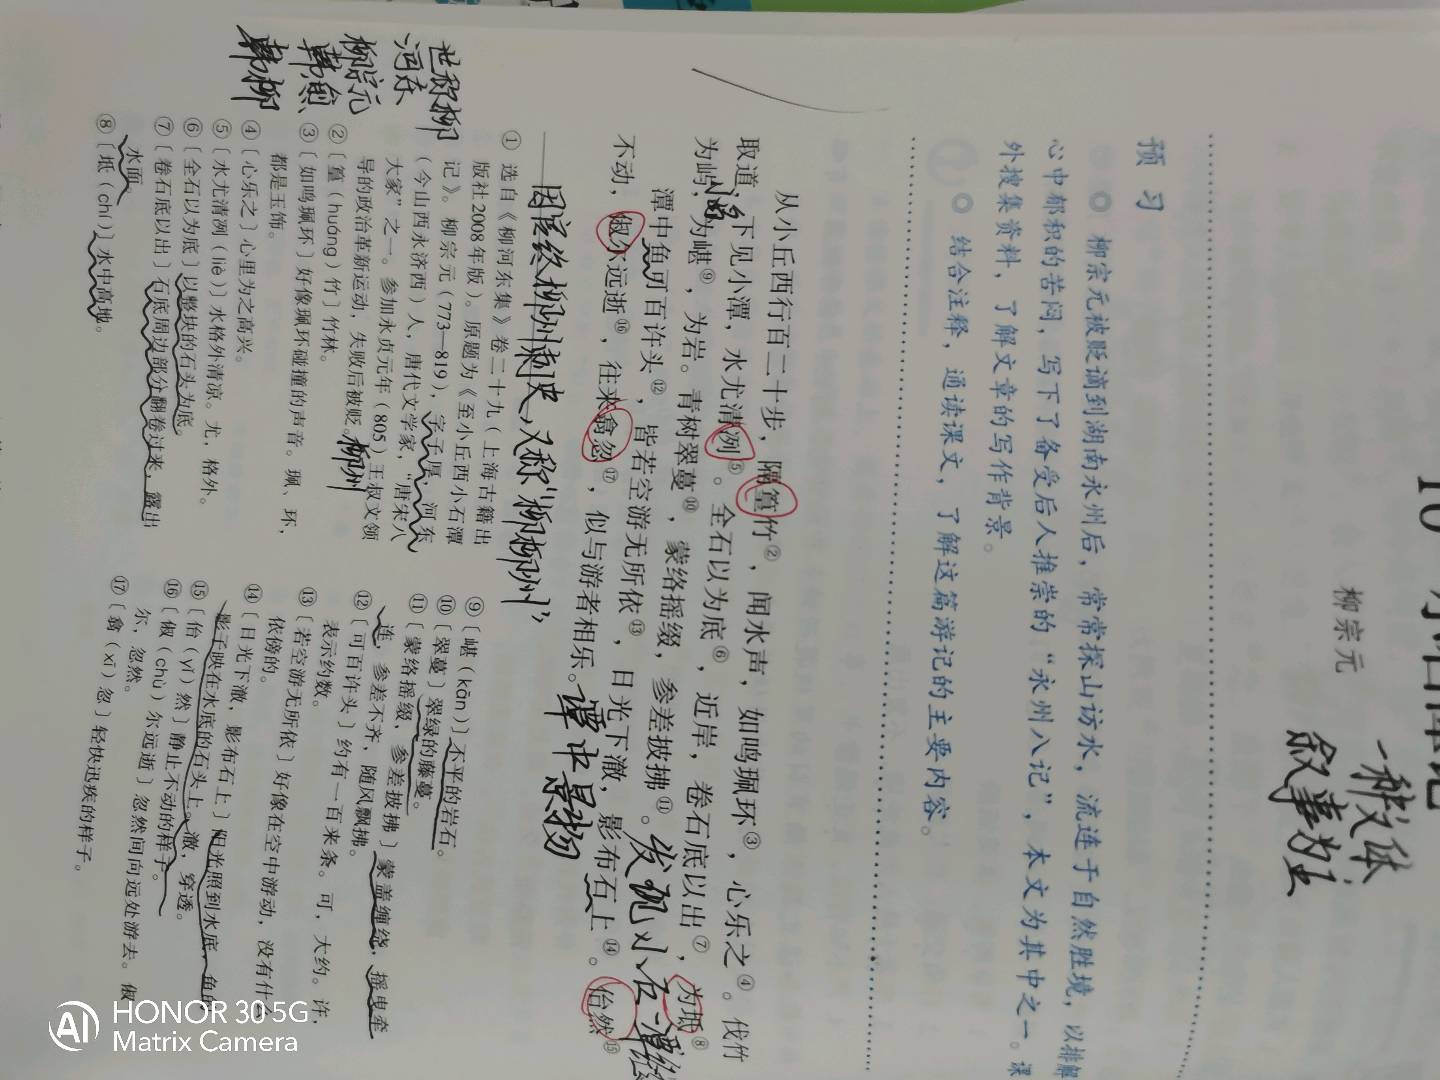 10 小石潭记
柳宗元
一种文体
叙事为主
预 习
柳宗元被贬谪到湖南永州后，常常探山访水，流连于自然胜境，以排解
心中郁积的苦闷，写下了备受后人推崇的“永州八记”，本文为其中之一。课
外搜集资料，了解文章的写作背景。
结合注释，通读课文，了解这篇游记的主要内容。
从小丘西行百二十步，隔篁竹②，闻水声，如鸣珮环③，心乐之④。伐竹
取道，下见小潭，水尤清冽⑤。全石以为底⑥，近岸，卷石底以出⑦，为坻⑧，
为屿，为嵁⑨，为岩。青树翠蔓⑩，蒙络摇缀，参差披拂⑪。
发现小石潭
潭中鱼可百许头⑫，皆若空游无所依⑬，日光下澈，影布石上⑭。佁然⑮
不动，俶尔远逝⑯，往来翕忽⑰，似与游者相乐。
潭中景物
因官终柳州刺史，又称“柳柳州”
① 选自《柳河东集》卷二十九（上海古籍出
版社2008年版）。原题为《至小丘西小石潭
记》。柳宗元（773—819），字子厚，河东
（今山西永济西）人，唐代文学家，“唐宋八
大家”之一。参加永贞元年（805）王叔文领
导的政治革新运动，失败后被贬。
柳州
世称柳
河东
柳宗元
韩愈
韩柳
②〔篁（huáng）竹〕竹林。
③〔如鸣珮环〕好像珮环碰撞的声音。珮、环，
都是玉饰。
④〔心乐之〕心里为之高兴。
⑤〔水尤清冽（liè）〕水格外清凉。尤，格外。
⑥〔全石以为底〕以整块的石头为底。
⑦〔卷石底以出〕石底周边部分翻卷过来，露出
水面。
⑧〔坻（chí）〕水中高地。
⑨〔嵁（kān）〕不平的岩石。
⑩〔翠蔓〕翠绿的藤蔓。
⑪〔蒙络摇缀，参差披拂〕蒙盖缠绕，摇曳牵
连，参差不齐，随风飘拂。
⑫〔可百许头〕约有一百来条。可，大约。许，
表示约数。
⑬〔若空游无所依〕好像在空中游动，没有什么
依傍的。
⑭〔日光下澈，影布石上〕阳光照到水底，鱼的
影子映在水底的石头上。澈，穿透。
⑮〔佁（yǐ）然〕静止不动的样子。
⑯〔俶（chù）尔远逝〕忽然间向远处游去。俶
尔，忽然。
⑰〔翕（xī）忽〕轻快迅疾的样子。
HONOR 30 5G
Matrix Camera